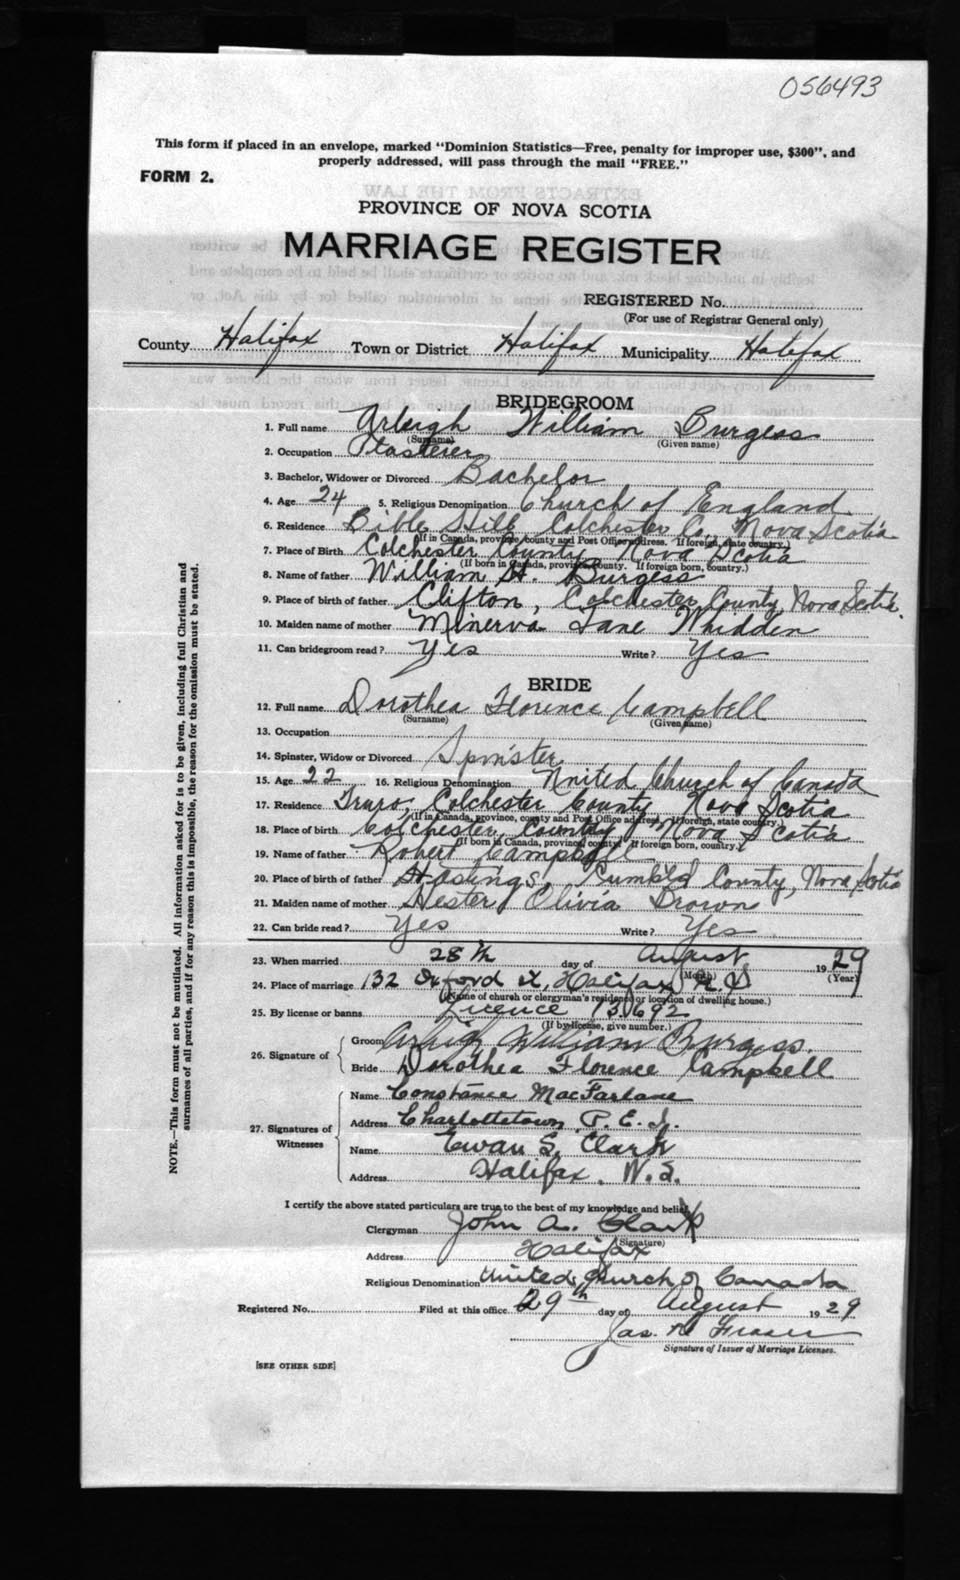 056493
This form if placed in an envelope, marked "Dominion Statistics—Free, penalty for improper use, $300", and
properly addressed, will pass through the mail "FREE."
FORM 2.
PROVINCE OF NOVA SCOTIA
MARRIAGE REGISTER
REGISTERED No.
(For use of Registrar General only)
County Halifax Town or District Halifax Municipality Halifax
BRIDEGROOM
1. Full name Arleigh William Burgess
(Surname) (Given name)
2. Occupation Plasterer
3. Bachelor, Widower or Divorced Bachelor
4. Age 24 5. Religious Denomination Church of England
6. Residence Bible Hill Colchester Co. Nova Scotia
(If in Canada, province, county and Post Office address. If foreign, state country.)
7. Place of Birth Colchester County Nova Scotia
(If born in Canada, province, county. If foreign born, country.)
8. Name of father William H. Burgess
9. Place of birth of father Clifton, Colchester County, Nova Scotia
10. Maiden name of mother Minerva Jane Whidden
11. Can bridegroom read? Yes Write? Yes
BRIDE
12. Full name Dorothea Florence Campbell
(Surname) (Given name)
13. Occupation
14. Spinster, Widow or Divorced Spinster
15. Age 22 16. Religious Denomination United Church of Canada
17. Residence Truro, Colchester County Nova Scotia
(If in Canada, province, county and Post Office address. If foreign, state country.)
18. Place of birth Colchester County Nova Scotia
(If born in Canada, province, county. If foreign born, country.)
19. Name of father Robert Campbell
20. Place of birth of father Hastings, Cumb'l'd County, Nova Scotia
21. Maiden name of mother Hester Olivia Brown
22. Can bride read? Yes Write? Yes
23. When married 28th day of August 1929
(Month) (Year)
24. Place of marriage 132 Oxford St, Halifax N.S
(Name of church or clergyman's residence or location of dwelling house.)
25. By license or banns Licence 13692
(If by license, give number.)
26. Signature of
Groom Arleigh William Burgess.
Bride Dorothea Florence Campbell
27. Signatures of Witnesses
Name Constance MacFarlane
Address Charlottetown P.E.I.
Name Ewan S. Clark
Address Halifax. N.S.
I certify the above stated particulars are true to the best of my knowledge and belief.
Clergyman John A. Clark
(Signature)
Address Halifax
Religious Denomination United Church of Canada
Registered No. Filed at this office 29th day of August 1929
Jas. Fraser
Signature of Issuer of Marriage Licenses.
[SEE OTHER SIDE]
NOTE.—This form must not be mutilated. All information asked for is to be given, including full Christian and
surnames of all parties, and if for any reason this is impossible, the reason for the omission must be stated.